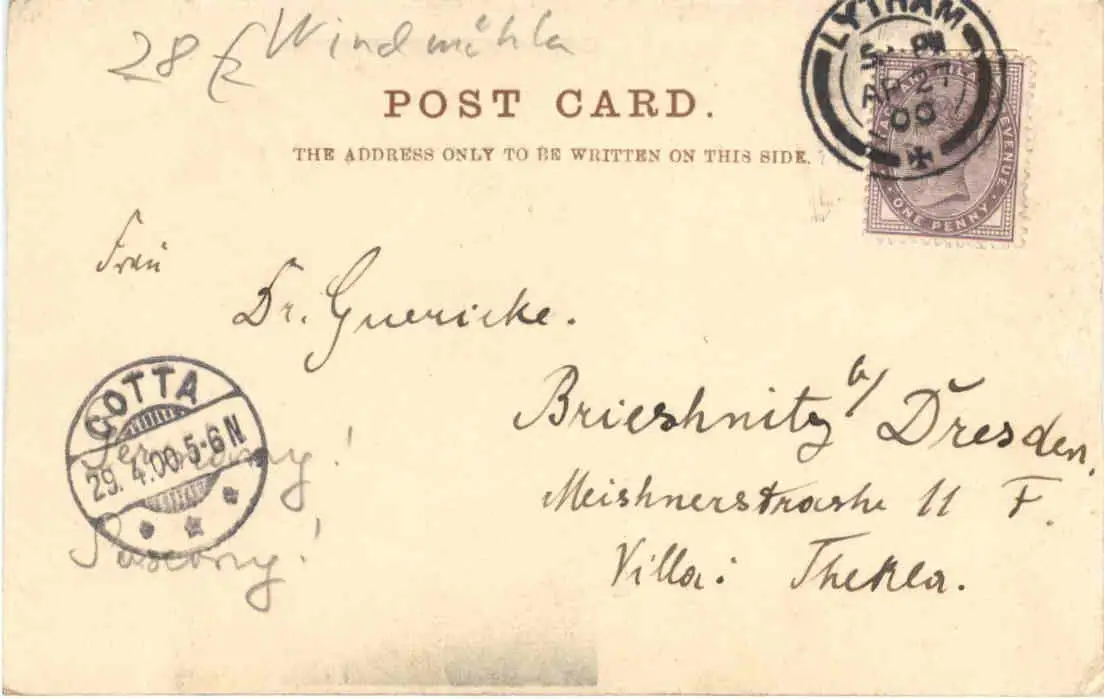 28 £ Windmühla
POST CARD.
THE ADDRESS ONLY TO BE WRITTEN ON THIS SIDE.
LYTHAM
5 PM
AP 27
00
REVENUE
ONE PENNY
Frau
Dr. Guericke.
Brieshnitz b/ Dresden,
Meishnerstrashe 11 F.
Villa: Thekla.
COTTA
29. 4.00 5-6 N
Germany!
Saxony!